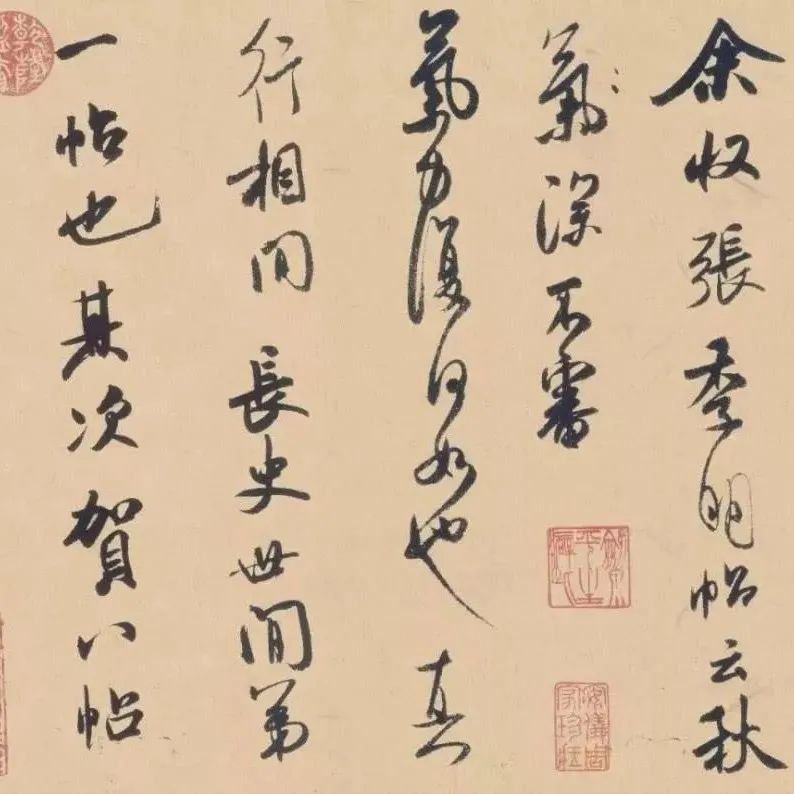 余收張季明帖云秋
氣深不審
氣力復何如也真
行相間長史世間第
一帖也其次賀八帖
安儀周家珍藏